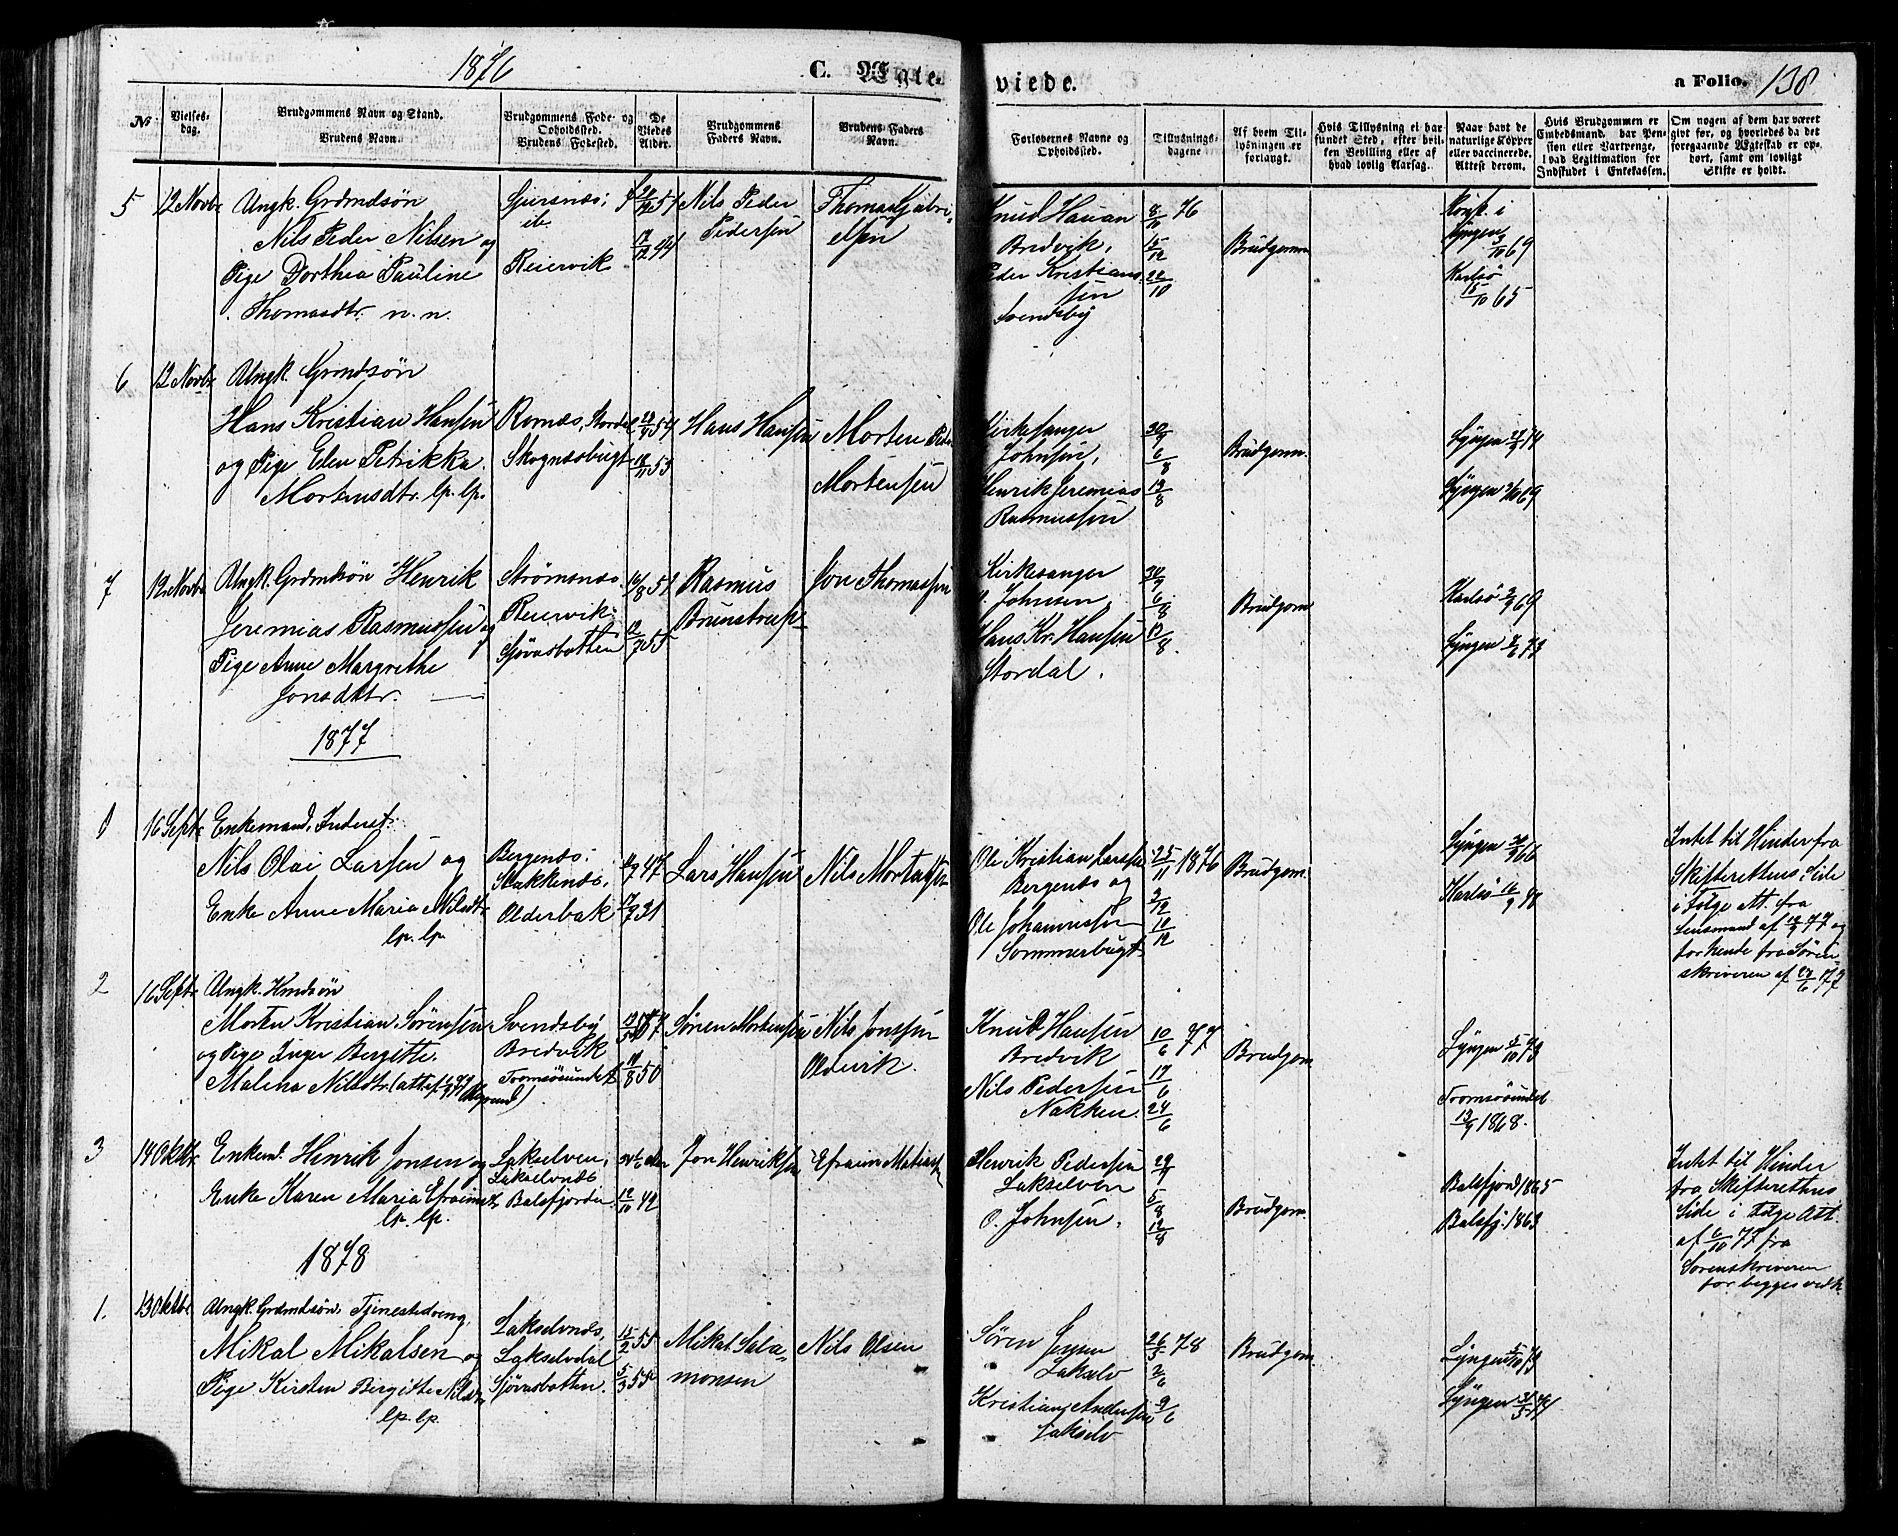 1876
C. Ægte-
viede.
a Folio. 138
No
Vielses-
dag.
Brudgommens Navn og Stand.
Brudens Navn.
Brudgommens Føde- og
Opholdssted.
Brudens Fødested.
De
Viedes
Alder.
Brudgommens
Faders Navn.
Brudens Faders
Navn.
Forlovernes Navne og
Opholdssted.
Tillysnings-
dagene
Af hvem Til-
lysningen er
forlangt.
Hvis Tillysning ei har
fundet Sted, efter hvil-
ken Bevilling eller af
hvad lovlig Aarsag.
Naar havt de
naturlige Kopper
eller vaccinerede.
Attest derom.
Hvis Brudgommen er
Embedsmand, har Pen-
sion eller Vartpenge,
hvad Legitimation for
Indskudet i Enkekassen.
Om nogen af dem har været
gift før, og hvorledes da det
foregaaende Ægteskab er op-
hørt, samt om lovligt
Skifte er holdt.
5 12 Novbr Ungk. Grdmdsøn
Nils Peder Nilsen og
Pige Dorthea Pauline
Thomasdtr. n.n.
ib.
Reiervik
Nils Peder
Pedersen
Thomas Gabri-
elsen
Knud Hansen
Bredvik,
Peder Kristian-
sen
Svendsby
8/10 76
15/12
22/10
Brudgomm
Lyngen
69
Karlsø
15/10 65
6 12 Novbr Ungk. Grmdsøn
Hans Kristian Hansen
og Pige Elen Petrikka
Mortensdtr. lp. lp.
Rornæs, Stordal
Skognæsbugt
54
53
Hans Hansen
Morten Peder
Mortensen
Kirkesanger
Johnsen,
Henrik Jeremias
Rasmussen
30/9
6/8
13/8
Brudgomm.
Lyngen 74
Lyngen 69
7 12 Novbr Ungk. Grdmdsøn Henrik
Jeremias Rasmussen og
Pige Anne Margrethe
Jonsdtr.
Strømsnæs
Reiervik
Sjøvasbotten
16/8 51
12/7 55
Rasmus
Brunstrup
Jon Thomassen
Kirkesanger
O. Johnsen,
Hans Kr. Hansen
Stordal.
30/9
6/8
13/8
Brudgom
Karlsø 69
Lyngen 73
1877
1 16 Septr Enkemand, Inderst
Nils Olai Larsen og
Enke Anne Maria Nilsdtr
lp. lp.
Bergenæs,
Stakkenæs,
Olderbak
47
31
Lars Hansen
Nils Mortensen
Ole Kristian Larsen
Bergenæs og
Ole Johannessen
Sommerbugt
25/11 1876
3/12
10/12
Brudgom
Lyngen 66
Karlsø 48
Intet til Hinder fra
Skifterettens Side
i Følge Att. fra
Lensmand af 12/9 77 og
for Kende fra Soren-
skriveren af 27/6 77
2 16 Septr Ungk. Hmdsøn
Morten Kristian Sørensen
og Pige Inger Bergitte
Malena Nilsdtr
Svendsby
Bredvik
Tromsøsundet
57
18/8 50
Søren Mortensen
Nils Jonssen
Oldervik.
Knud Hansen
Bredvik
Nils Pedersen
Nakken
10/6 77
17/6
24/6
Brudgom
Lyngen 5/10 73
Tromsøsundet
13/9 1868.
3 14 Oktbr. Enkemd. Henrik Jonsen og
Enke Karen Maria Efraimsdtr
lp. lp.
Lakselven,
Lakselvnæs
Balsfjorden
12/10 42
Jon Henriksen
Efraim Matiassen
Henrik Pedersen
Lakselven
O. Johnsen,
29/7
5/8
12/8
Brudgom.
Balsfjord 1865
Balsfj. 1863
Intet til Hinder
fra Skifterettens
Side i Følge Att.
af 6/10 77 fra
Sorenskriveren
for begges vedk
1878
1. 13 Oktbr Ungk. Grdmdsøn, Tjenestedreng
Mikal Mikalsen og
Pige Kirsten Bergitte Nilsdtr
lp. lp.
Lakselvnæs,
Lakselvdal
Sjøvasbotten.
15/2 55
5/3 55
Mikal Sala-
monsen
Nils Olsen
Søren Jensen
Lakselv
Kristian Andersen
Lakselv
26/5 78
2/6
9/6
Brudgom
Lyngen 5/10 73
Lyngen